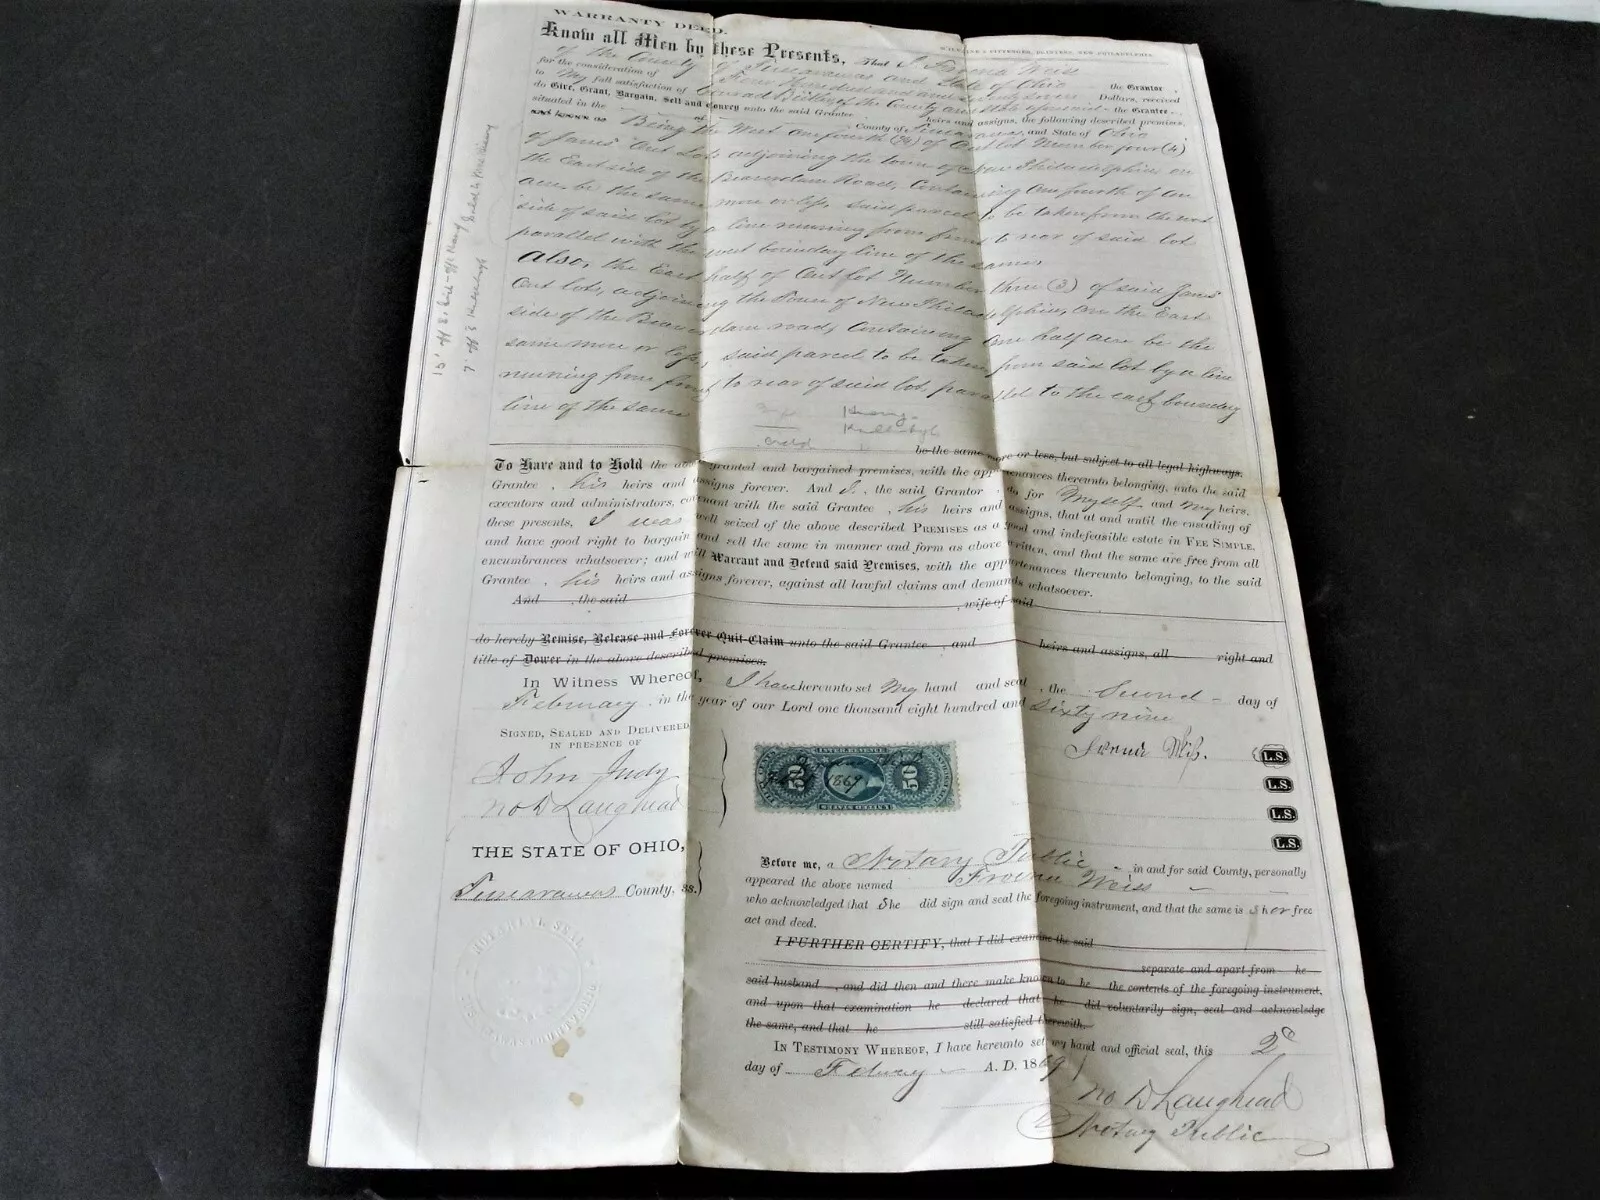 WARRANTY DEED.
Know all Men by these Presents, That I Frema Weiss
of the County of Tuscarawas and State of Ohio the Grantor,
for the consideration of Four Hundred and Dollars, received
to My full satisfaction of Conrad of the County and State aforesaid the Grantee
do Give, Grant, Bargain, Sell and Convey unto the said Grantee heirs and assigns, the following described premises,
situated in the of County of Tuscarawas, and State of Ohio
Being the West one fourth (¼) of Out Lot Number four (4)
of Janes' Out Lots adjoining the town of New Philadelphia, on
the East side of the Beaverdam Road, Containing One fourth of an
acre be the same more or less, said parcel to be taken from the west
side of said lot by a line running from front to rear of said lot
parallel with the west boundary line of the same,
Also, the East half of Out lot Number three (3) of said Janes'
Out lots, adjoining the Town of New Philadelphia, on the East
side of the Beaverdam road, Containing One half acre be the
same more or less, said parcel to be taken from said lot by a line
running from front to rear of said lot, parallel to the east boundary
line of the same
be the same more or less, but subject to all legal highways.
To Have and to Hold the above granted and bargained premises, with the appurtenances thereunto belonging, unto the said
Grantee, his heirs and assigns forever. And I, the said Grantor, do for Myself and My heirs,
executors and administrators, covenant with the said Grantee, his heirs and assigns, that at and until the ensealing of
these presents, I was well seized of the above described PREMISES as a good and indefeasible estate in FEE SIMPLE,
and have good right to bargain and sell the same in manner and form as above written, and that the same are free from all
encumbrances whatsoever; and will Warrant and Defend said Premises, with the appurtenances thereunto belonging, to the said
Grantee, his heirs and assigns forever, against all lawful claims and demands whatsoever.
And , the said , wife of said
do hereby Remise, Release and Forever Quit-Claim unto the said Grantee , and heirs and assigns, all right and
title of Dower in the above described premises.
In Witness Whereof, I have hereunto set My hand and seal, the Second day of
February, in the year of our Lord one thousand eight hundred and sixty nine
SIGNED, SEALED AND DELIVERED
IN PRESENCE OF
John Judy
L.S.
L.S.
L.S.
L.S.
INTER. REVENUE
50 1869 50
UNITED STATES
THE STATE OF OHIO,
Tuscarawas County, ss.
Before me, a Notary Public in and for said County, personally
appeared the above named Weiss
who acknowledged that She did sign and seal the foregoing instrument, and that the same is her free
act and deed.
I FURTHER CERTIFY, that I did examine the said
separate and apart from he
said husband , and did then and there make known to he the contents of the foregoing instrument,
and upon that examination he declared that he did voluntarily sign, seal and acknowledge
the same, and that he still satisfied therewith.
NOTARIAL SEAL
TUSCARAWAS COUNTY, OHIO.
IN TESTIMONY WHEREOF, I have hereunto set my hand and official seal, this 2d
day of February A. D. 1869
D Laughead
Notary Public